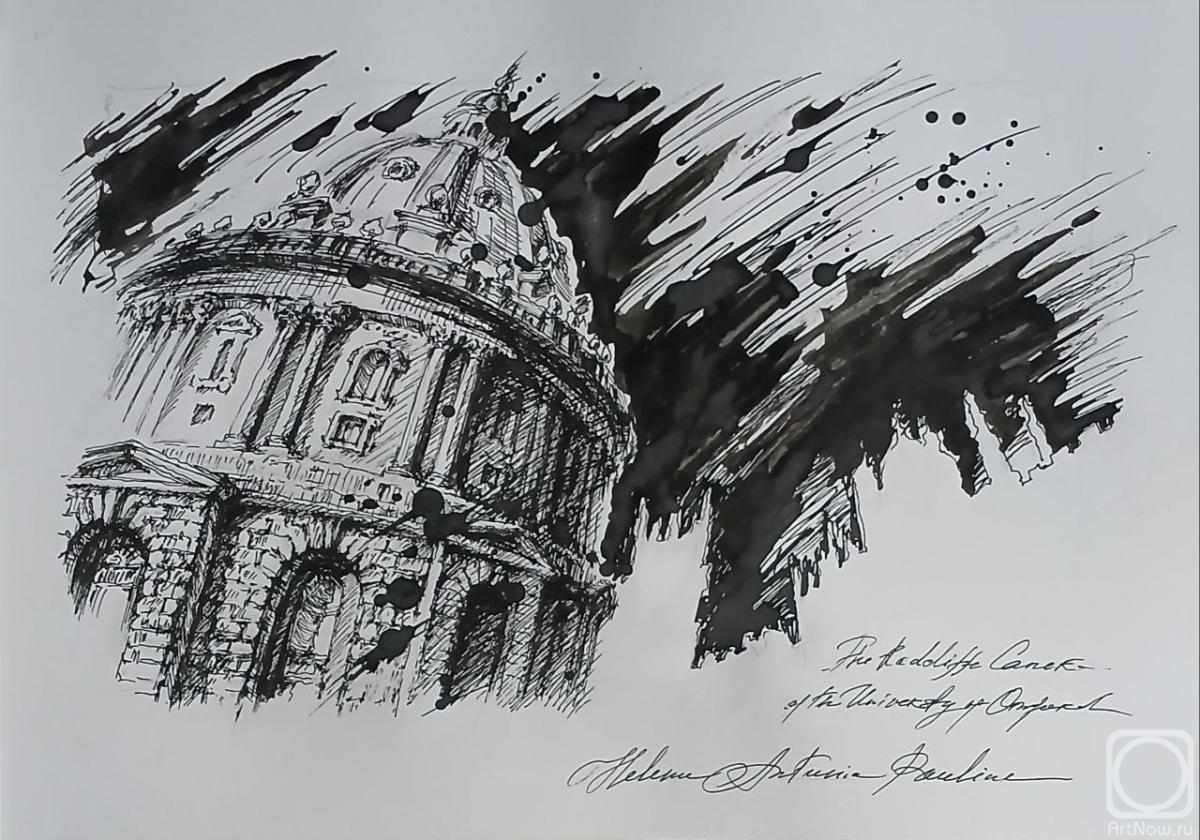 The Radcliffe Camera
of the University of Oxford
Helena Antonia Pauline
ArtNow.ru